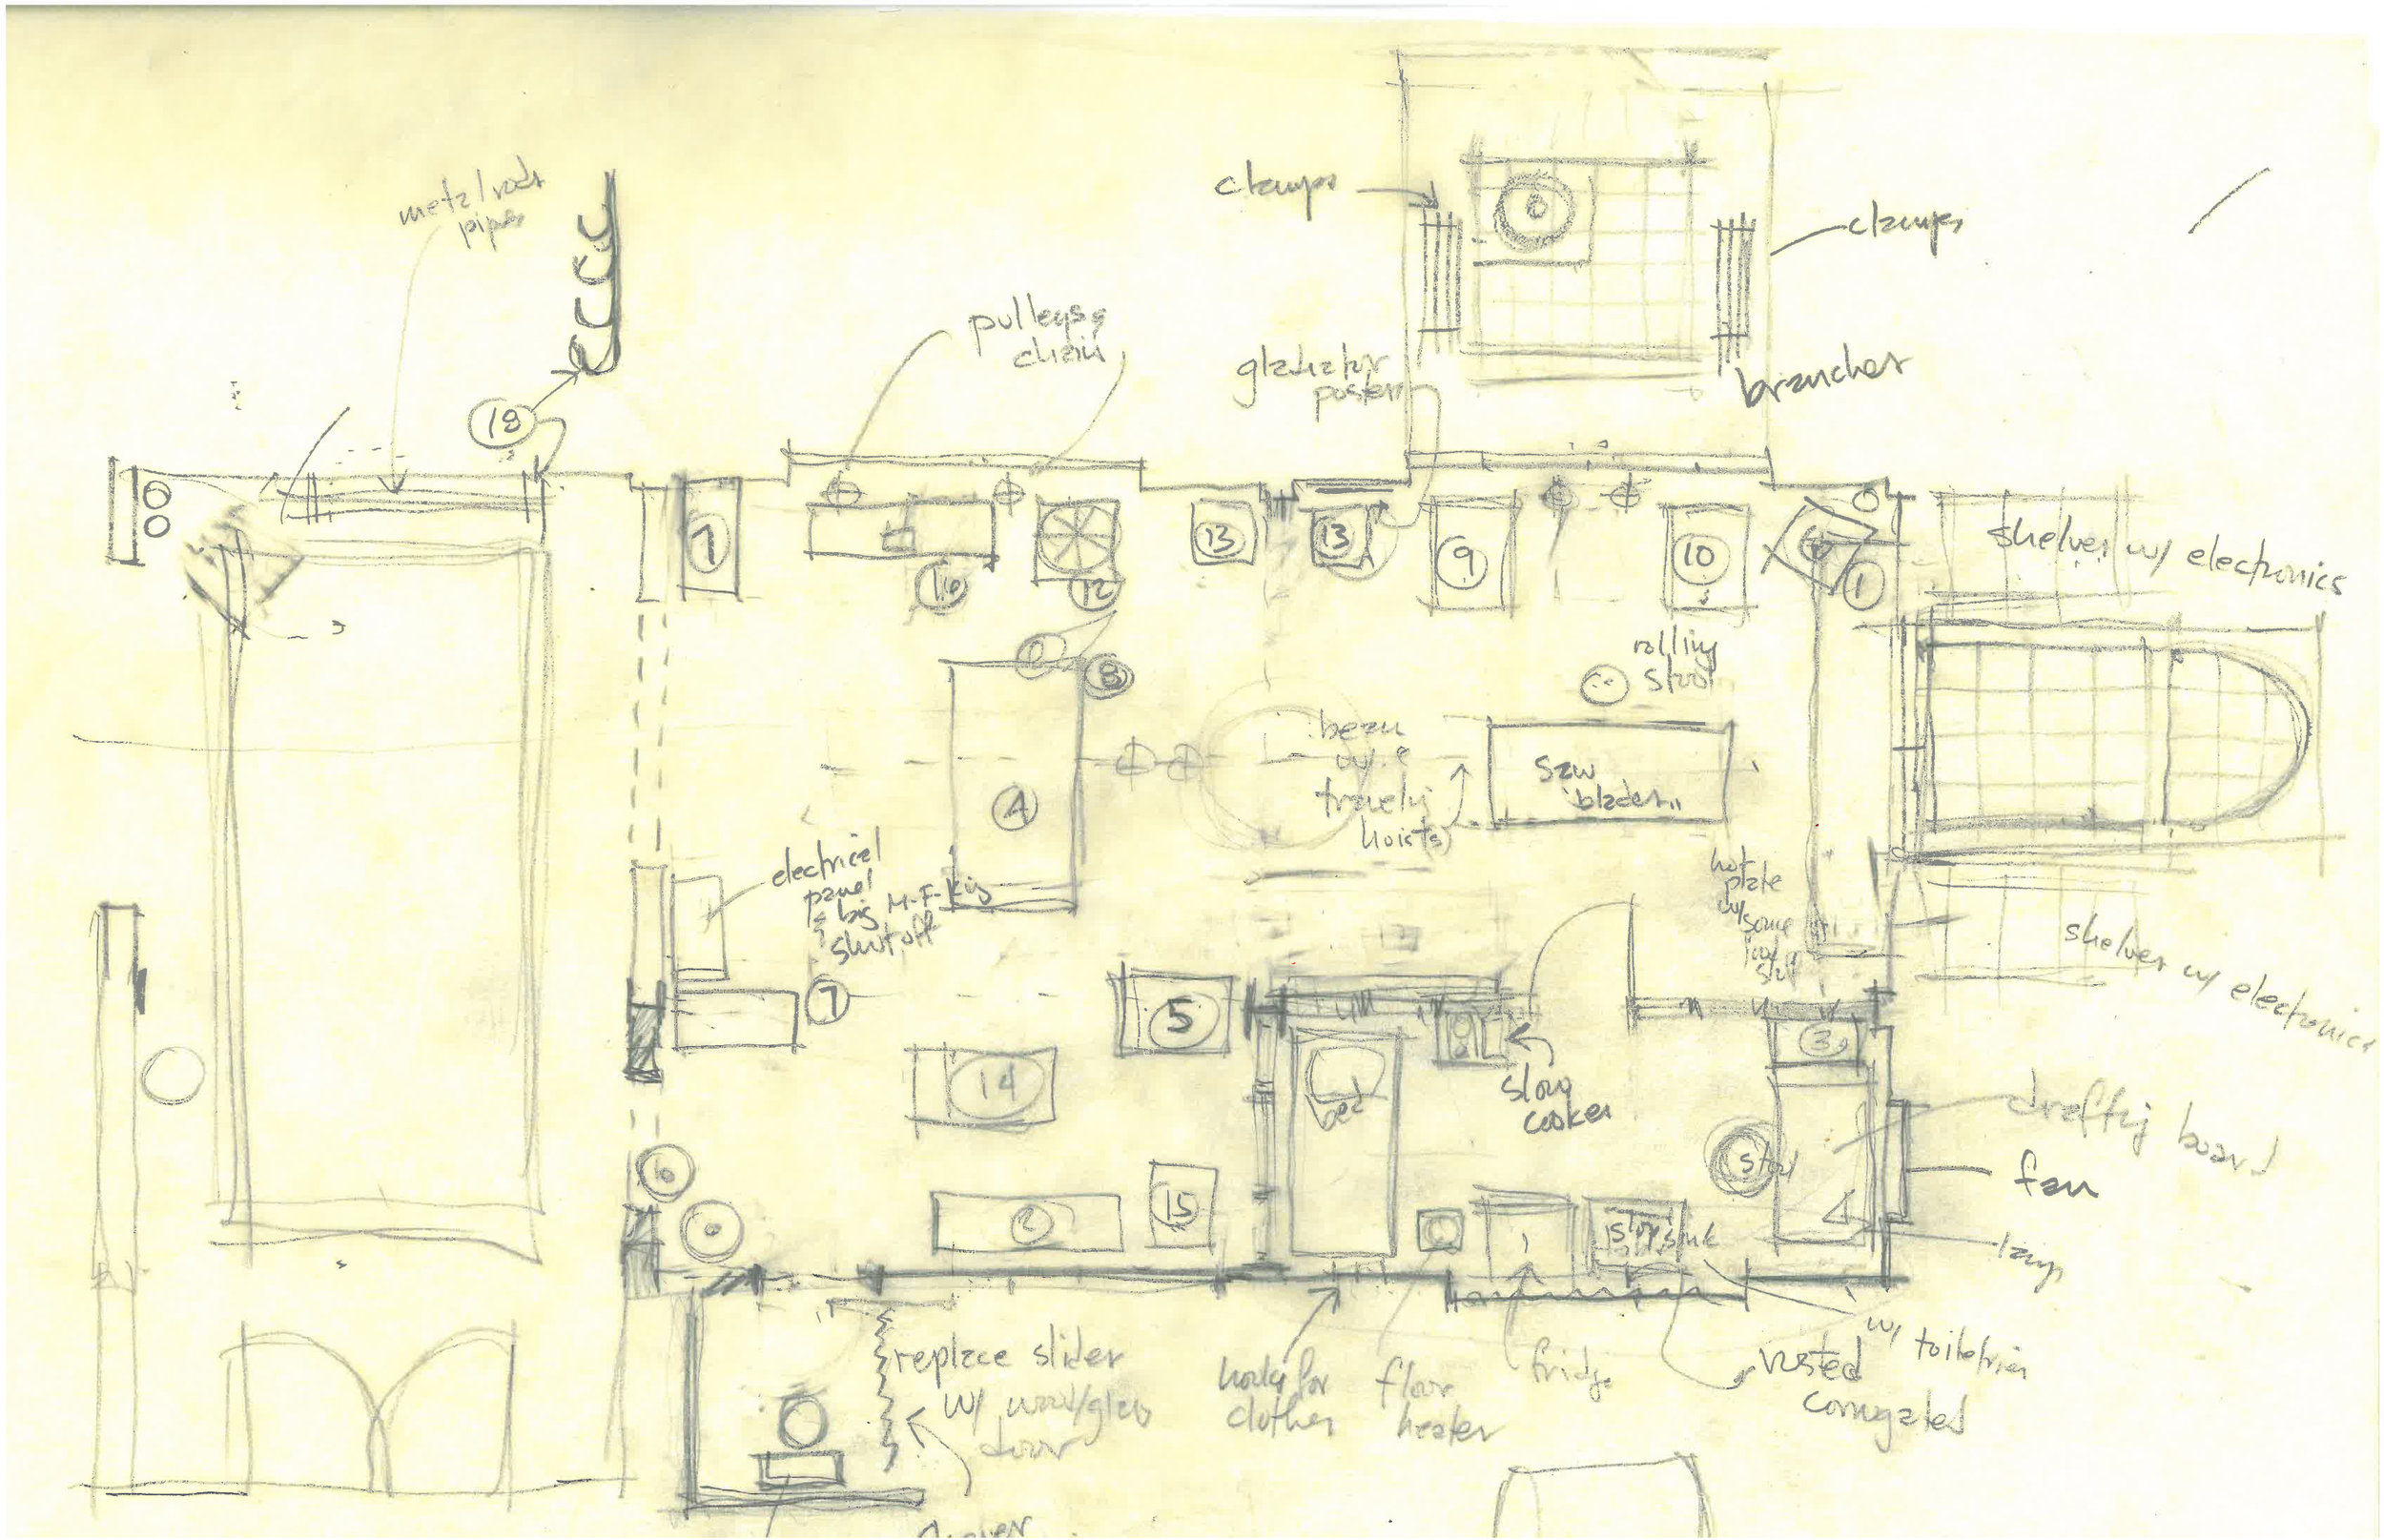 metal rods
pipes
18
pulleys &
chain
clamps
clamps
gladiator
poster
branches
1
16
12
13
13
9
10
1
shelves w/ electronics
rolling
stool
8
beam
w/ 2
travelig
hoists
saw
blades
4
electrical
panel
& big M-F-Kig
shutoff
hot
plate
w/some
shelves w/ electronics
7
5
14
bed
slow
cooker
3
stool
drafting board
fan
lamp
6
2
15
slop sink
replace slider
w/ wood/glass
door
hooks for
clothes
floor
heater
fridge
w/ toiletries
rusted
corrugated